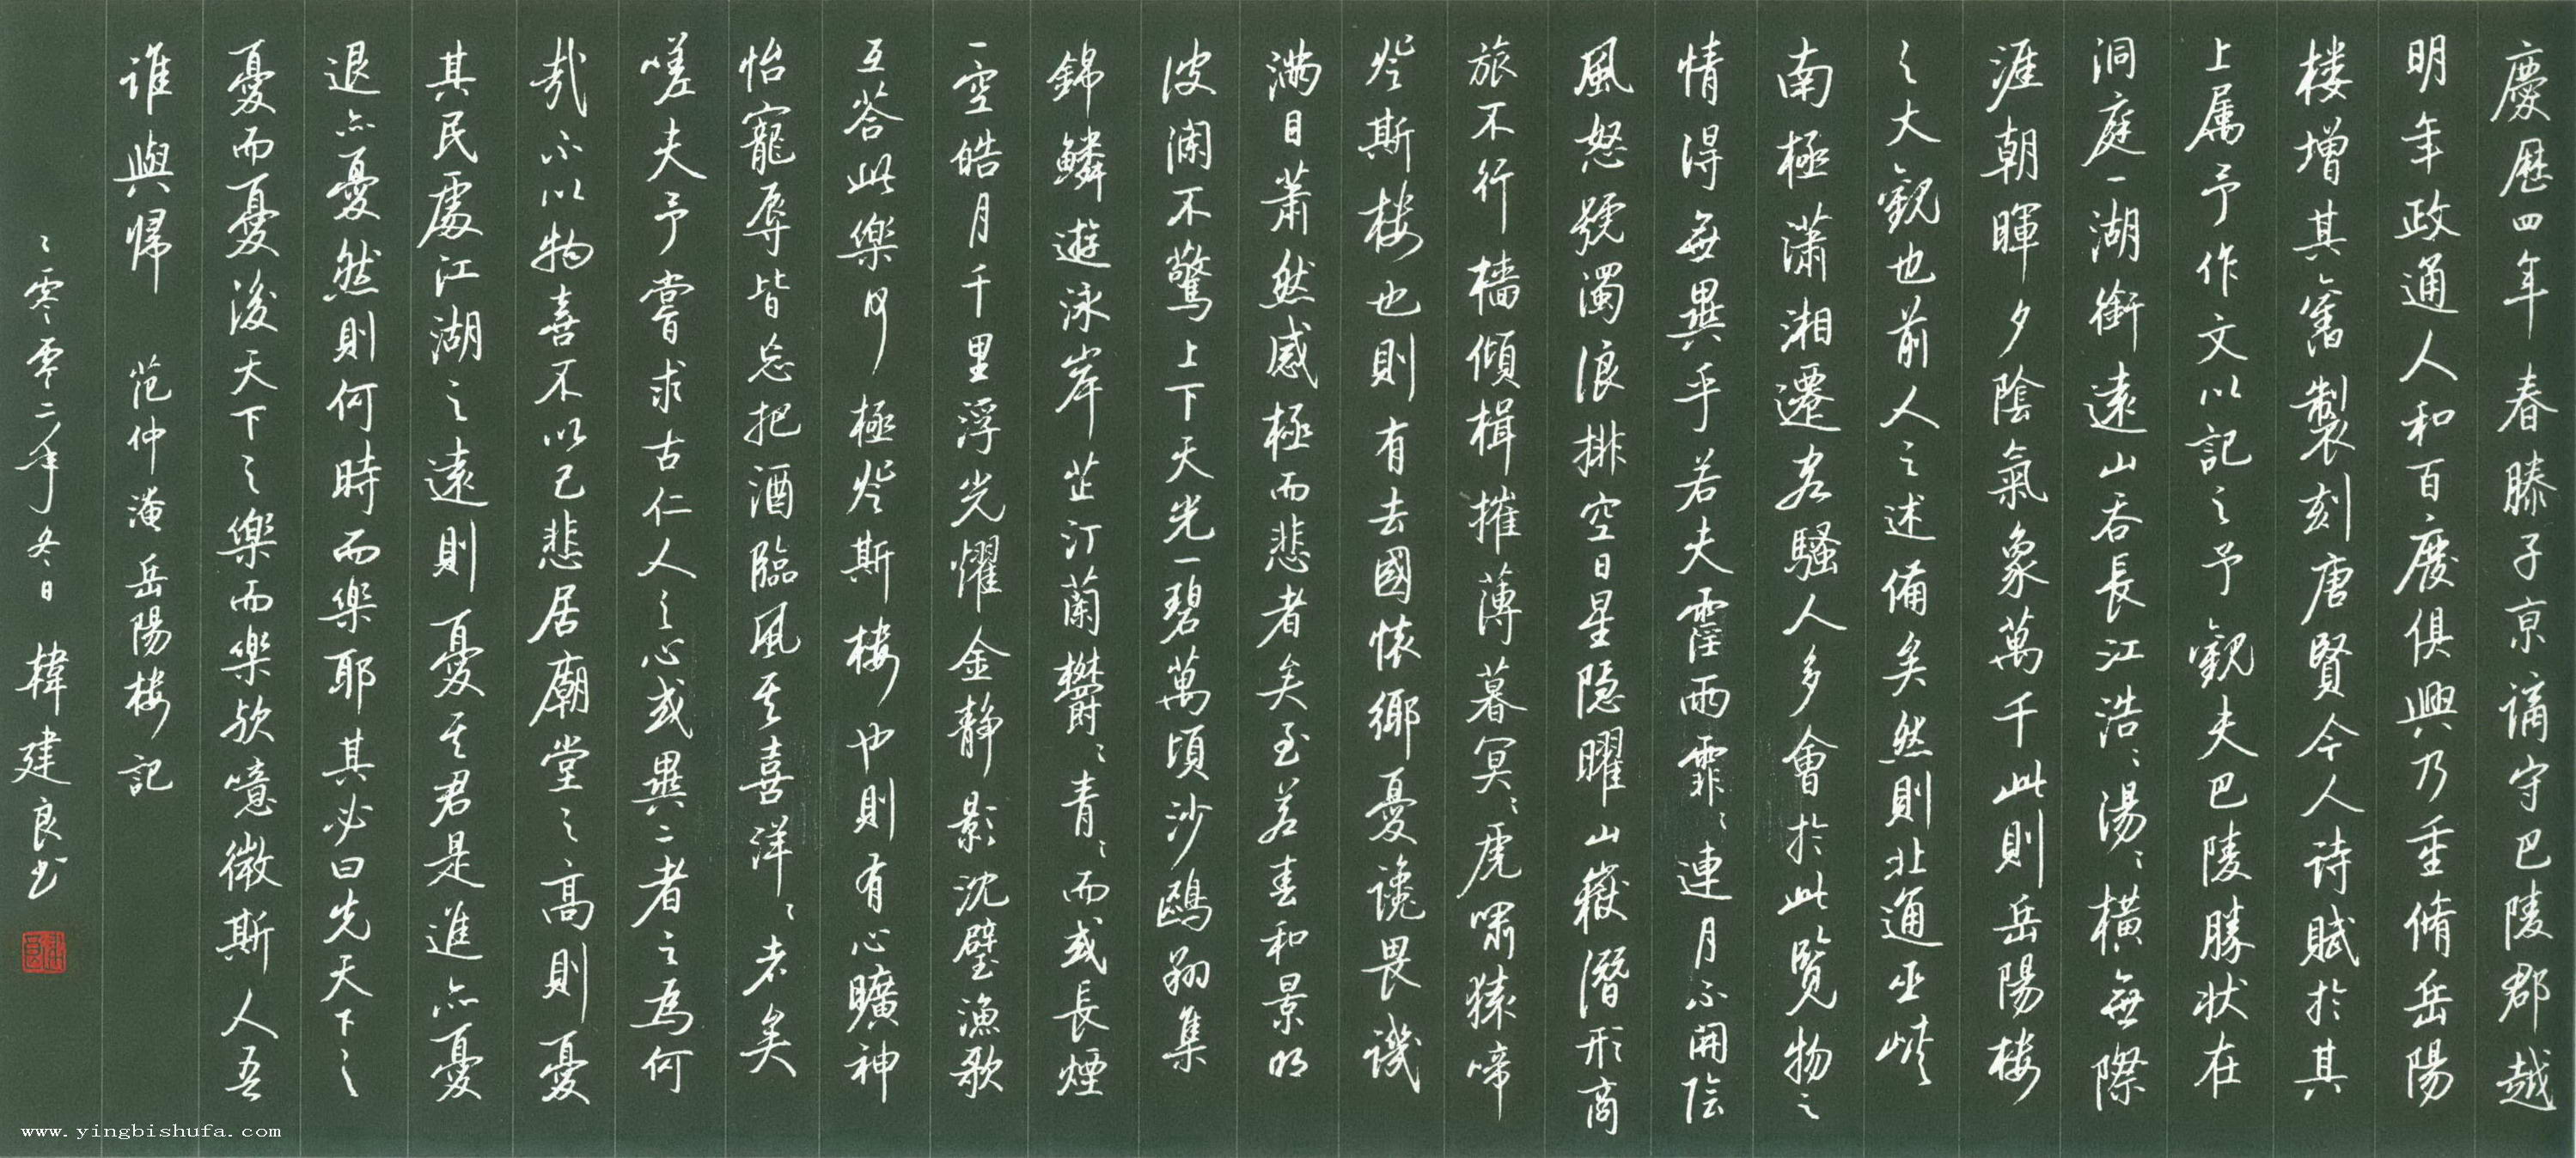 慶歷四年春滕子京謫守巴陵郡越
明年政通人和百廢俱興乃重脩岳陽
楼增其舊製刻唐賢今人詩賦於其
上属予作文以記之予觀夫巴陵勝狀在
洞庭一湖銜遠山吞長江浩〻湯〻橫無際
涯朝暉夕陰氣象萬千此則岳陽楼
之大觀也前人之述備矣然則北通巫峽
南極瀟湘遷客騷人多會於此覽物之
情得無異乎若夫霪雨霏〻連月不開陰
風怒號濁浪排空日星隐曜山嶽潛形商
旅不行檣傾楫摧薄暮冥〻虎嘯猿啼
登斯楼也則有去國懷鄉憂讒畏譏
滿目蕭然感極而悲者矣至若春和景明
波瀾不驚上下天光一碧萬頃沙鷗翔集
錦鱗遊泳岸芷汀蘭欝〻青〻而或長煙
一空皓月千里浮光耀金靜影沈璧漁歌
互答此樂何極登斯楼也則有心曠神
怡寵辱皆忘把酒臨風其喜洋〻者矣
嗟夫予嘗求古仁人之心或異二者之為何
哉不以物喜不以己悲居廟堂之高則憂
其民處江湖之遠則憂其君是進亦憂
退亦憂然則何時而樂耶其必曰先天下之
憂而憂後天下之樂而樂欤噫微斯人吾
誰與歸 范仲淹岳陽楼記
二零零二年冬日 韓建良书
www.yingbishufa.com